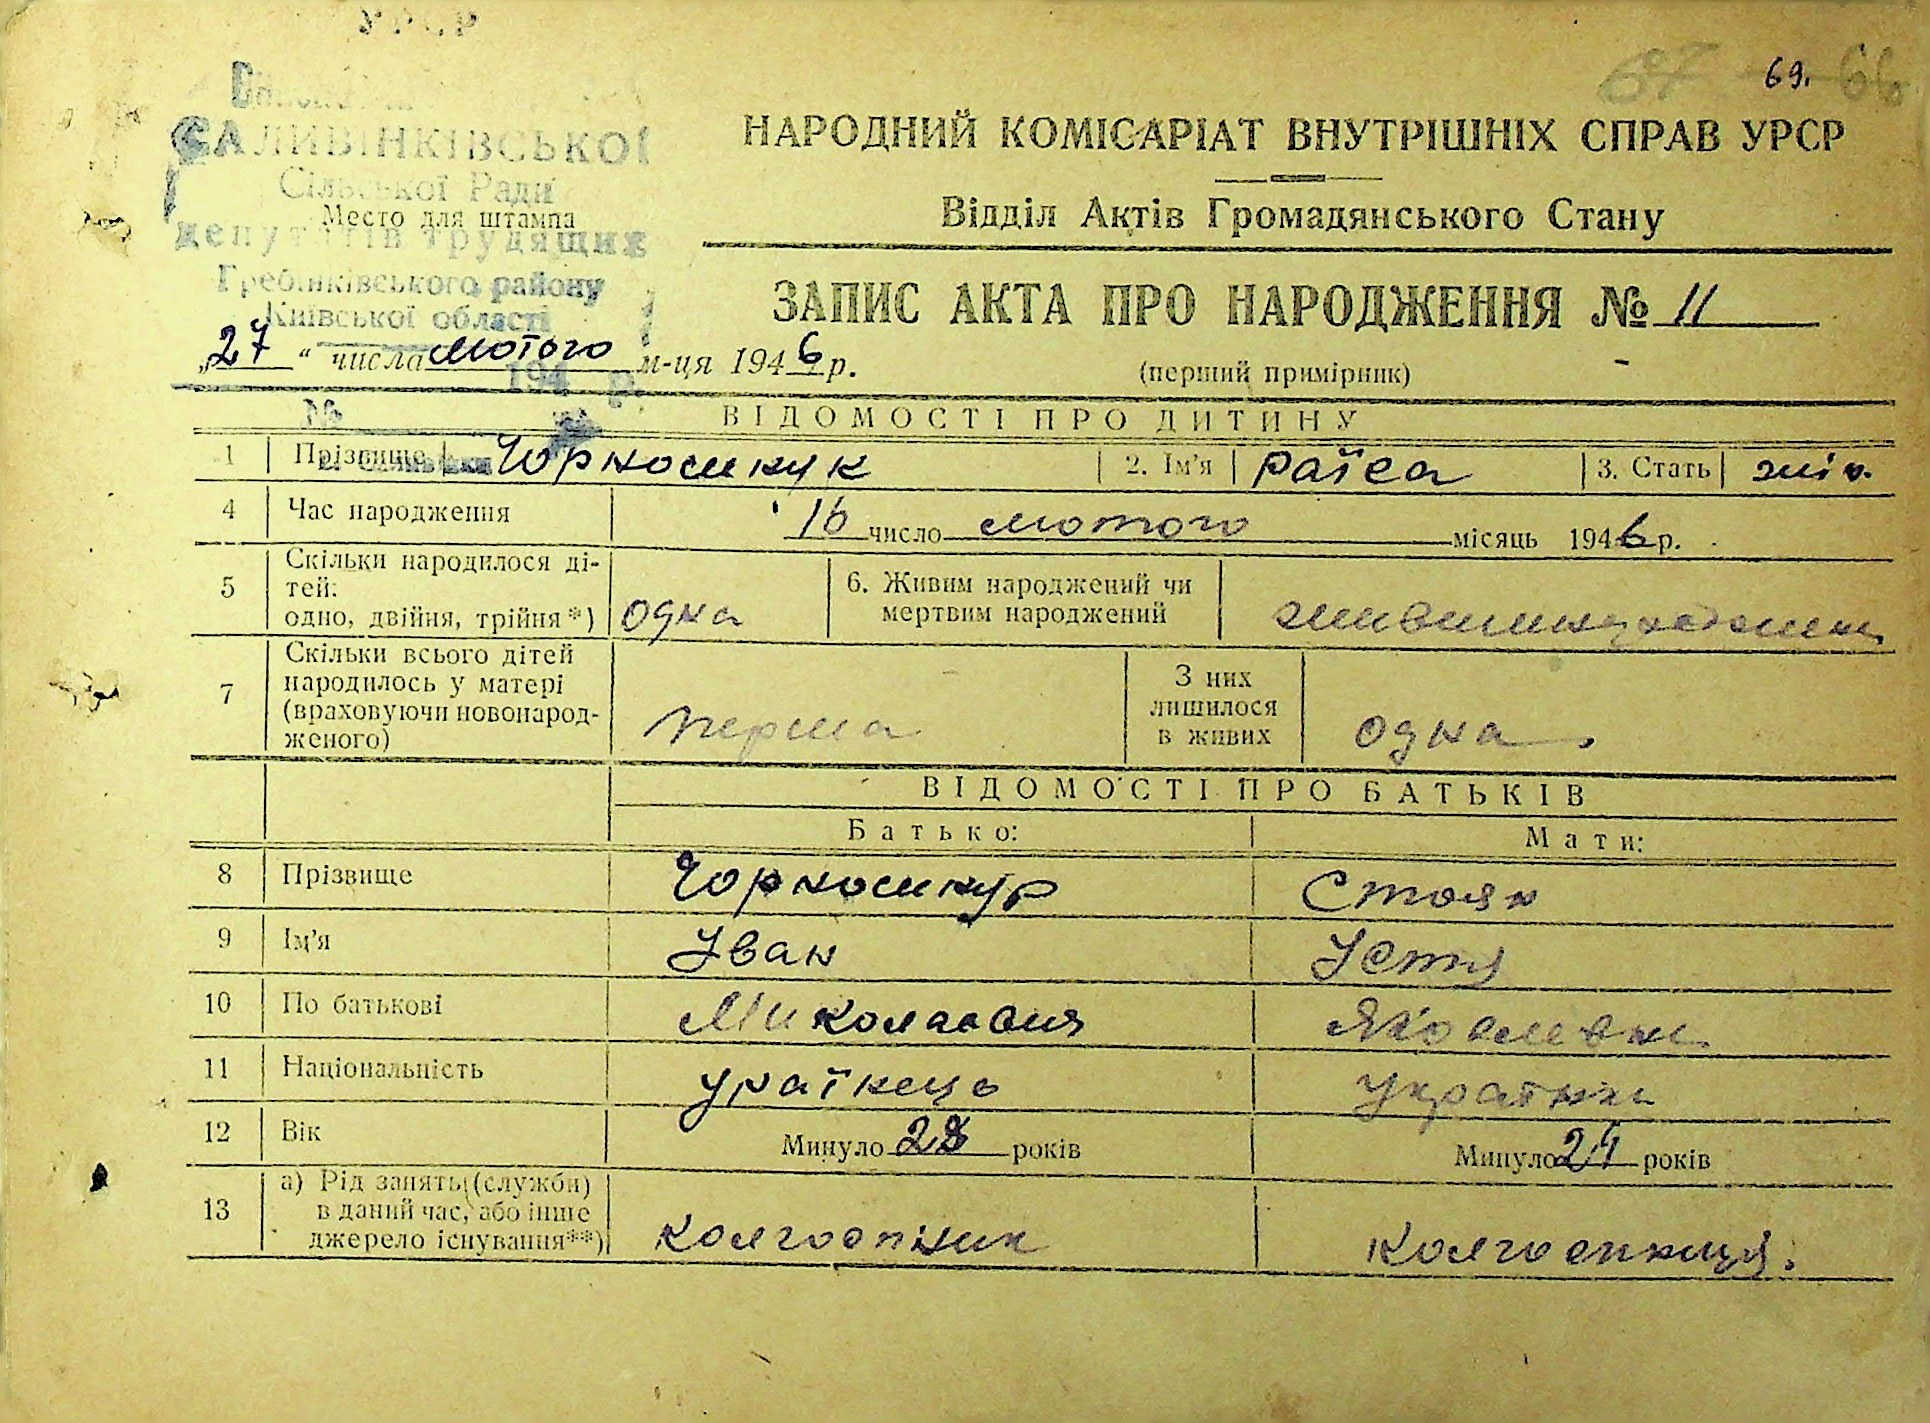 УРСР
69.
67 66
САЛИВІНКІВСЬКОЇ
Сільської Ради
Место для штампа
депутатів трудящих
Гребінківського району
Київської області
194 р.
№
НАРОДНИЙ КОМІСАРІАТ ВНУТРІШНІХ СПРАВ УРСР
Відділ Актів Громадянського Стану
ЗАПИС АКТА ПРО НАРОДЖЕННЯ № 11
„27" числа лютого м-ця 1946 р.
(перший примірник)
ВІДОМОСТІ ПРО ДИТИНУ
1 Прізвище 2. Ім'я Раїса 3. Стать жін.
4 Час народження 16 число лютого місяць 1946 р.
5 Скільки народилося ді-
тей:
одно, двійня, трійня*) одна
6. Живим народжений чи
мертвим народжений
7 Скільки всього дітей
народилось у матері
(враховуючи новонарод-
женого) перша
З них
лишилося
в живих одна
ВІДОМОСТІ ПРО БАТЬКІВ
Батько: Мати:
8 Прізвище Стоян
9 Ім'я Іван Устя
10 По батькові Миколаєвич Яковлевн
11 Національність україкець українка
12 Вік Минуло 28 років Минуло 24 років
13 а) Рід занять (служби)
в даний час, або інше
джерело існування**) колгоспник колгоспниця.